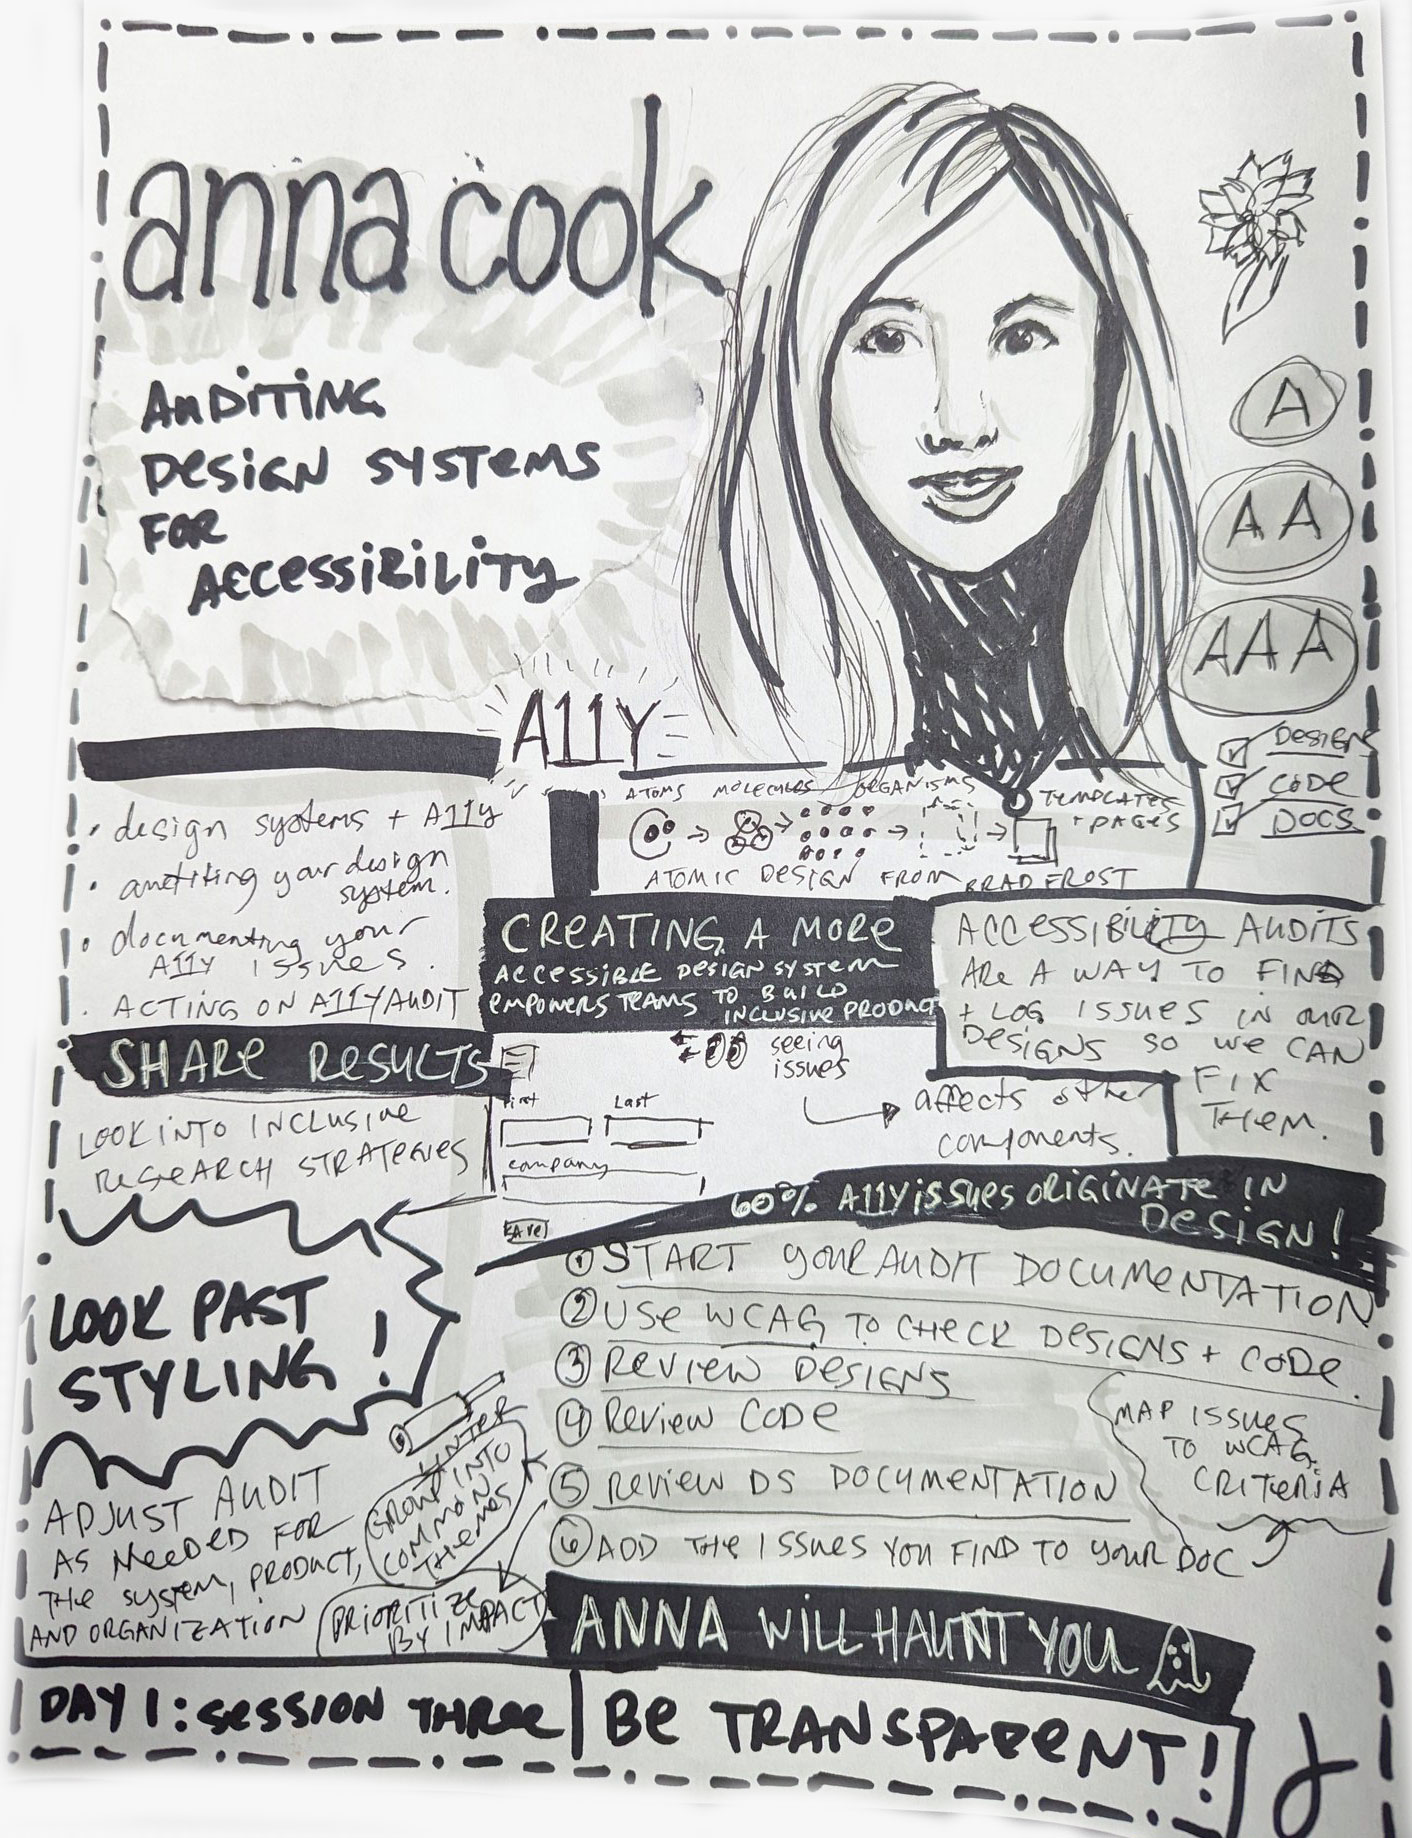 anna cook
AUDITING
DESIGN SYSTEMS
FOR
ACCESSIBILITY
A
AA
AAA
DESIGN
CODE
DOCS
A11Y
ATOMS MOLECULES ORGANISMS
TEMPLATES
+ PAGES
ATOMIC DESIGN FROM BRAD FROST
• design systems + A11Y
• auditing your design
system.
• documenting your
A11Y issues.
• ACTING ON A11Y AUDIT
CREATING A MORE
ACCESSIBLE DESIGN SYSTEM
EMPOWERS TEAMS TO BUILD
INCLUSIVE PRODUCT
ACCESSIBILITY AUDITS
ARE A WAY TO FIND
+ LOG ISSUES IN OUR
DESIGNS SO WE CAN
FIX
THEM.
SHARE RESULTS
LOOK INTO INCLUSIVE
RESEARCH STRATEGIES
seeing
issues
affects other
components.
First Last
company
SAVE
60% A11Y issues ORIGINATE IN
DESIGN!
① START YOUR AUDIT DOCUMENTATION
② USE WCAG TO CHECK DESIGNS + CODE.
③ REVIEW DESIGNS
④ REVIEW CODE
⑤ REVIEW DS DOCUMENTATION
⑥ ADD THE ISSUES YOU FIND TO YOUR DOC
MAP ISSUES
TO WCAG
CRITERIA
LOOK PAST
STYLING!
LINTER
GROUP INTO
COMMON
THEMES
PRIORITIZE
BY IMPACT
ADJUST AUDIT
AS NEEDED FOR
THE SYSTEM, PRODUCT,
AND ORGANIZATION
ANNA WILL HAUNT YOU
DAY 1: SESSION THREE
BE TRANSPARENT!